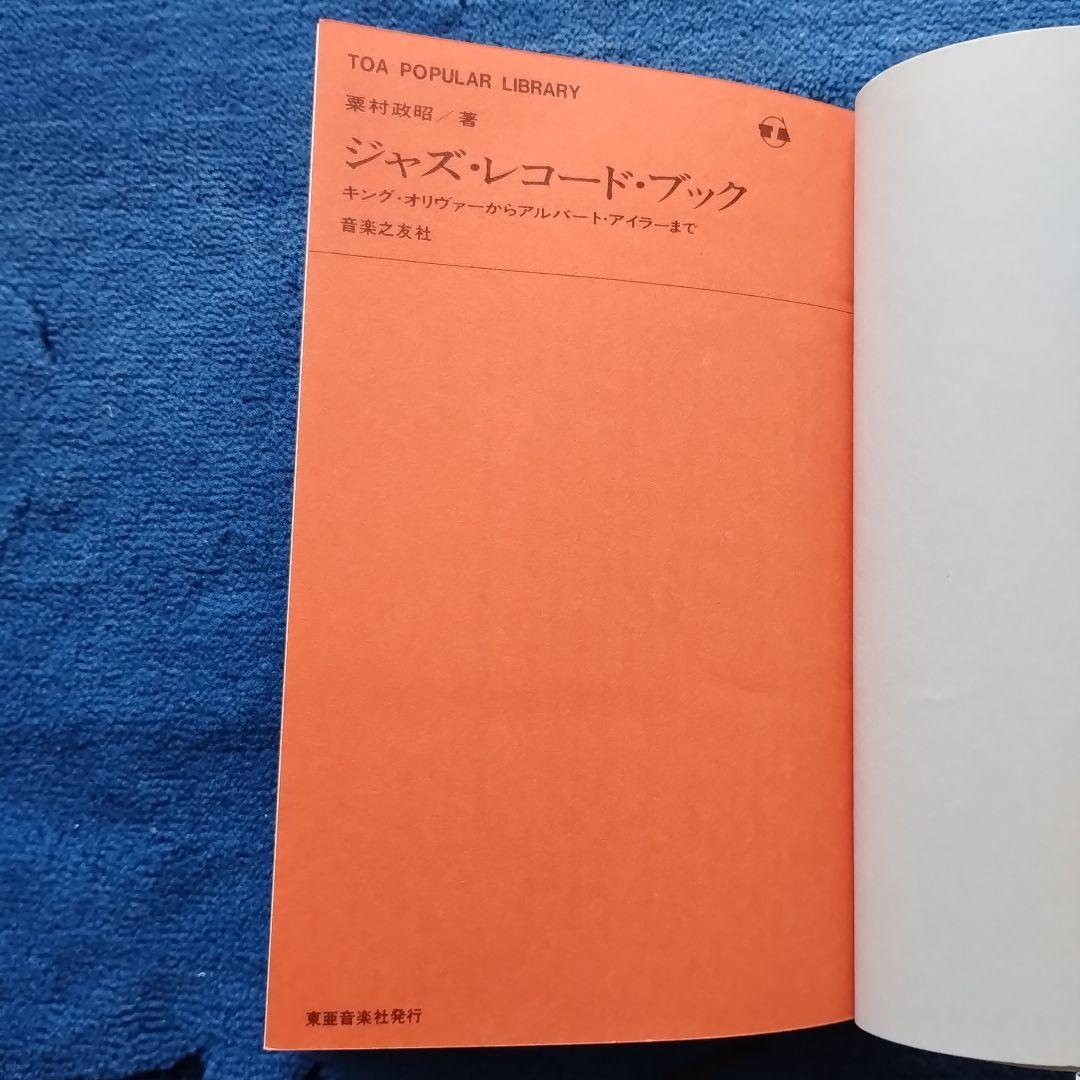 TOA POPULAR LIBRARY
粟村政昭/著
ジャズ・レコード・ブック
キング・オリヴァーからアルバート・アイラーまで
音楽之友社
東亜音楽社発行